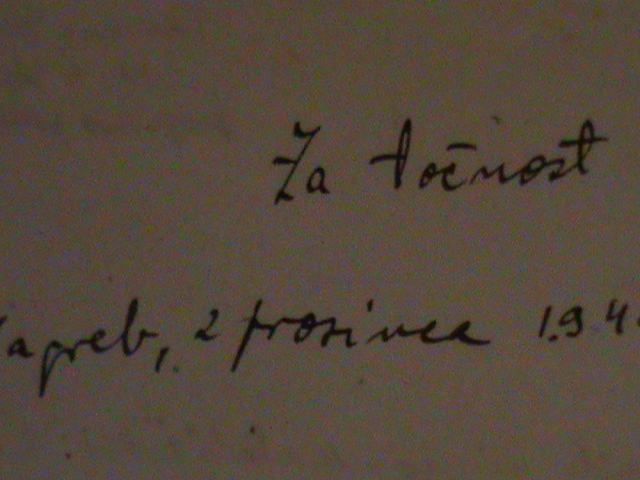 Za točnost
Zagreb, 2 prosinca